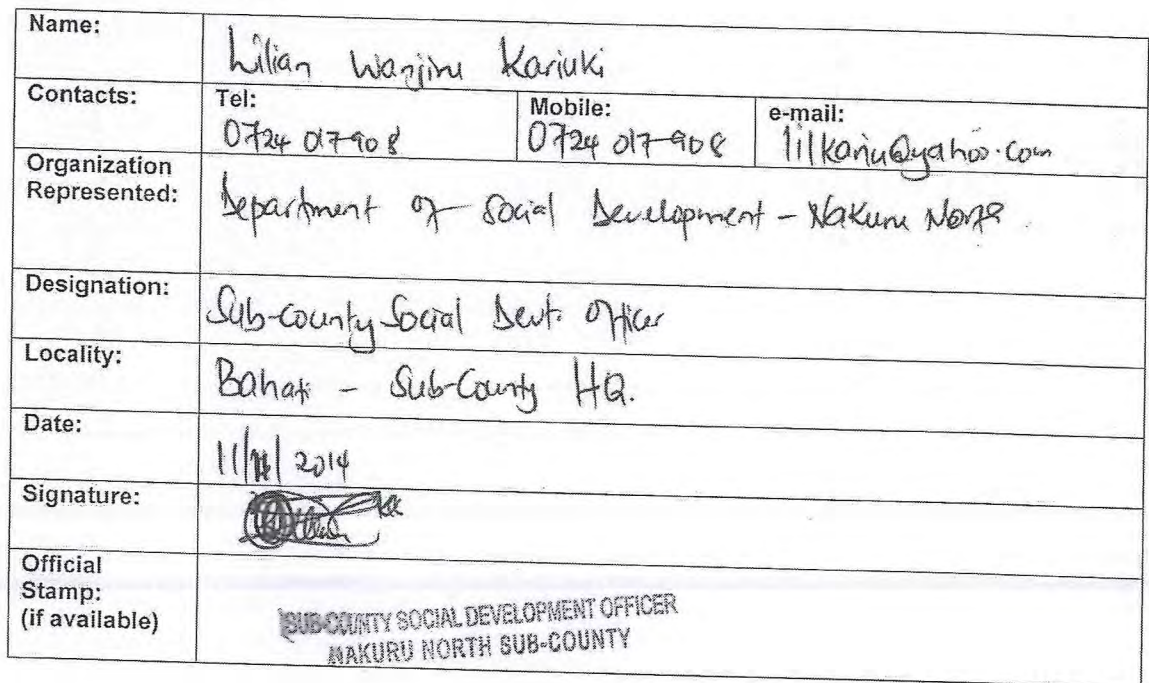 Name:
Lilian Wanjiru Kariuki
Contacts:
Tel:
0724 017 908
Mobile:
0724 017 908
e-mail:
lilkariu@yahoo.com
Organization
Represented:
Department of Social Development - Nakuru North
Designation:
Sub-County Social Devt. Officer
Locality:
Bahati - Sub-County HQ.
Date:
2014
Signature:
Official
Stamp:
(if available)
SUB-COUNTY SOCIAL DEVELOPMENT OFFICER
NAKURU NORTH SUB-COUNTY